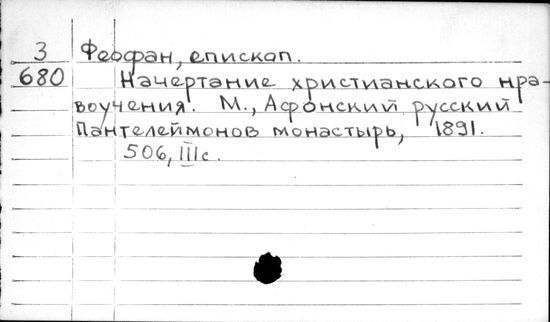 3 Феофан, епископ.
680 Начертание христианского нра-
воучения. М., Афонский русский
Пантелеймонов монастырь, 1891.
506, IIIс.